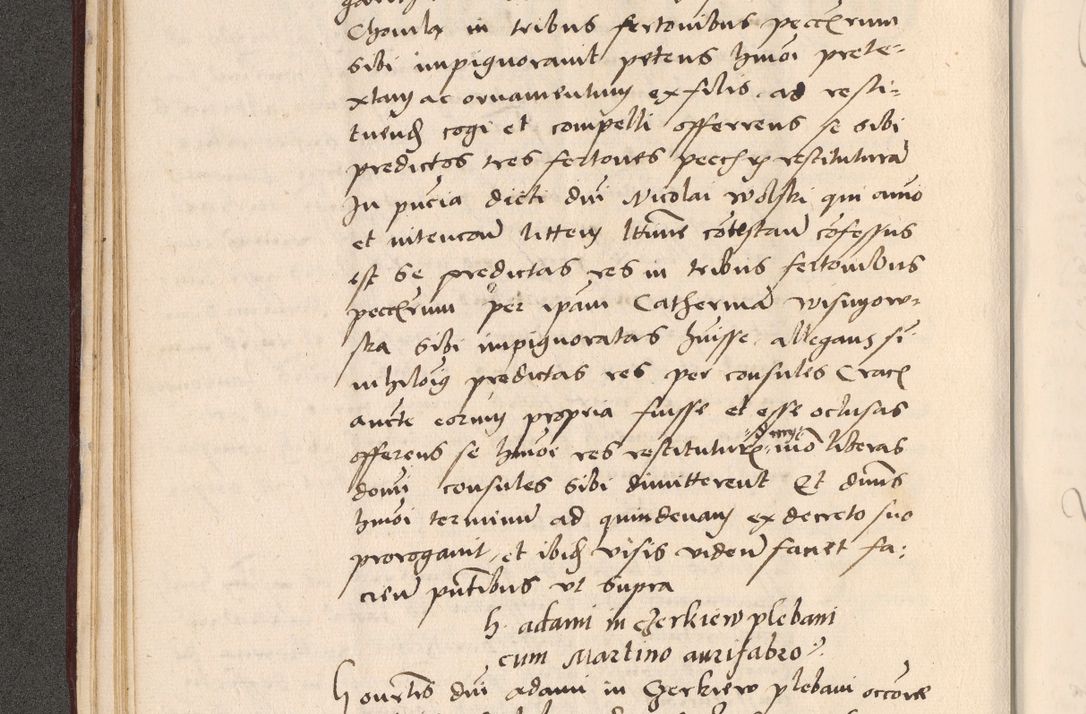 Chomla in tribus fertonibus peccarum
sibi impignoravit petens hmoi prete=
xtam ac ornamentum ex filis ad resti=
tuend cogi et compelli offerrens se sibi
predictos tres fertones restitutura
In pncia dicti dni Nicolai Wolski qui
et litem contestan confessus
est se predictas res in tribus fertonibus
per ipam Catherina Wisnyow=
ska sibi impignoratas huisse allegans si
predictas res per consules Crac
aucte eorum propria fuisse et esse oclusas
offerens se hmoi res restitutur mo liberas
domi consules sibi dimitterent Et dnus
hmoi terminum ad quindenam ex decreto suo
prorogavit et ibid visis viden faciet fa=
cien pntibus ut supra
h. adami in Czerkiew plebani
cum Martino aurifabro
dni adami in Czerkiew plebani